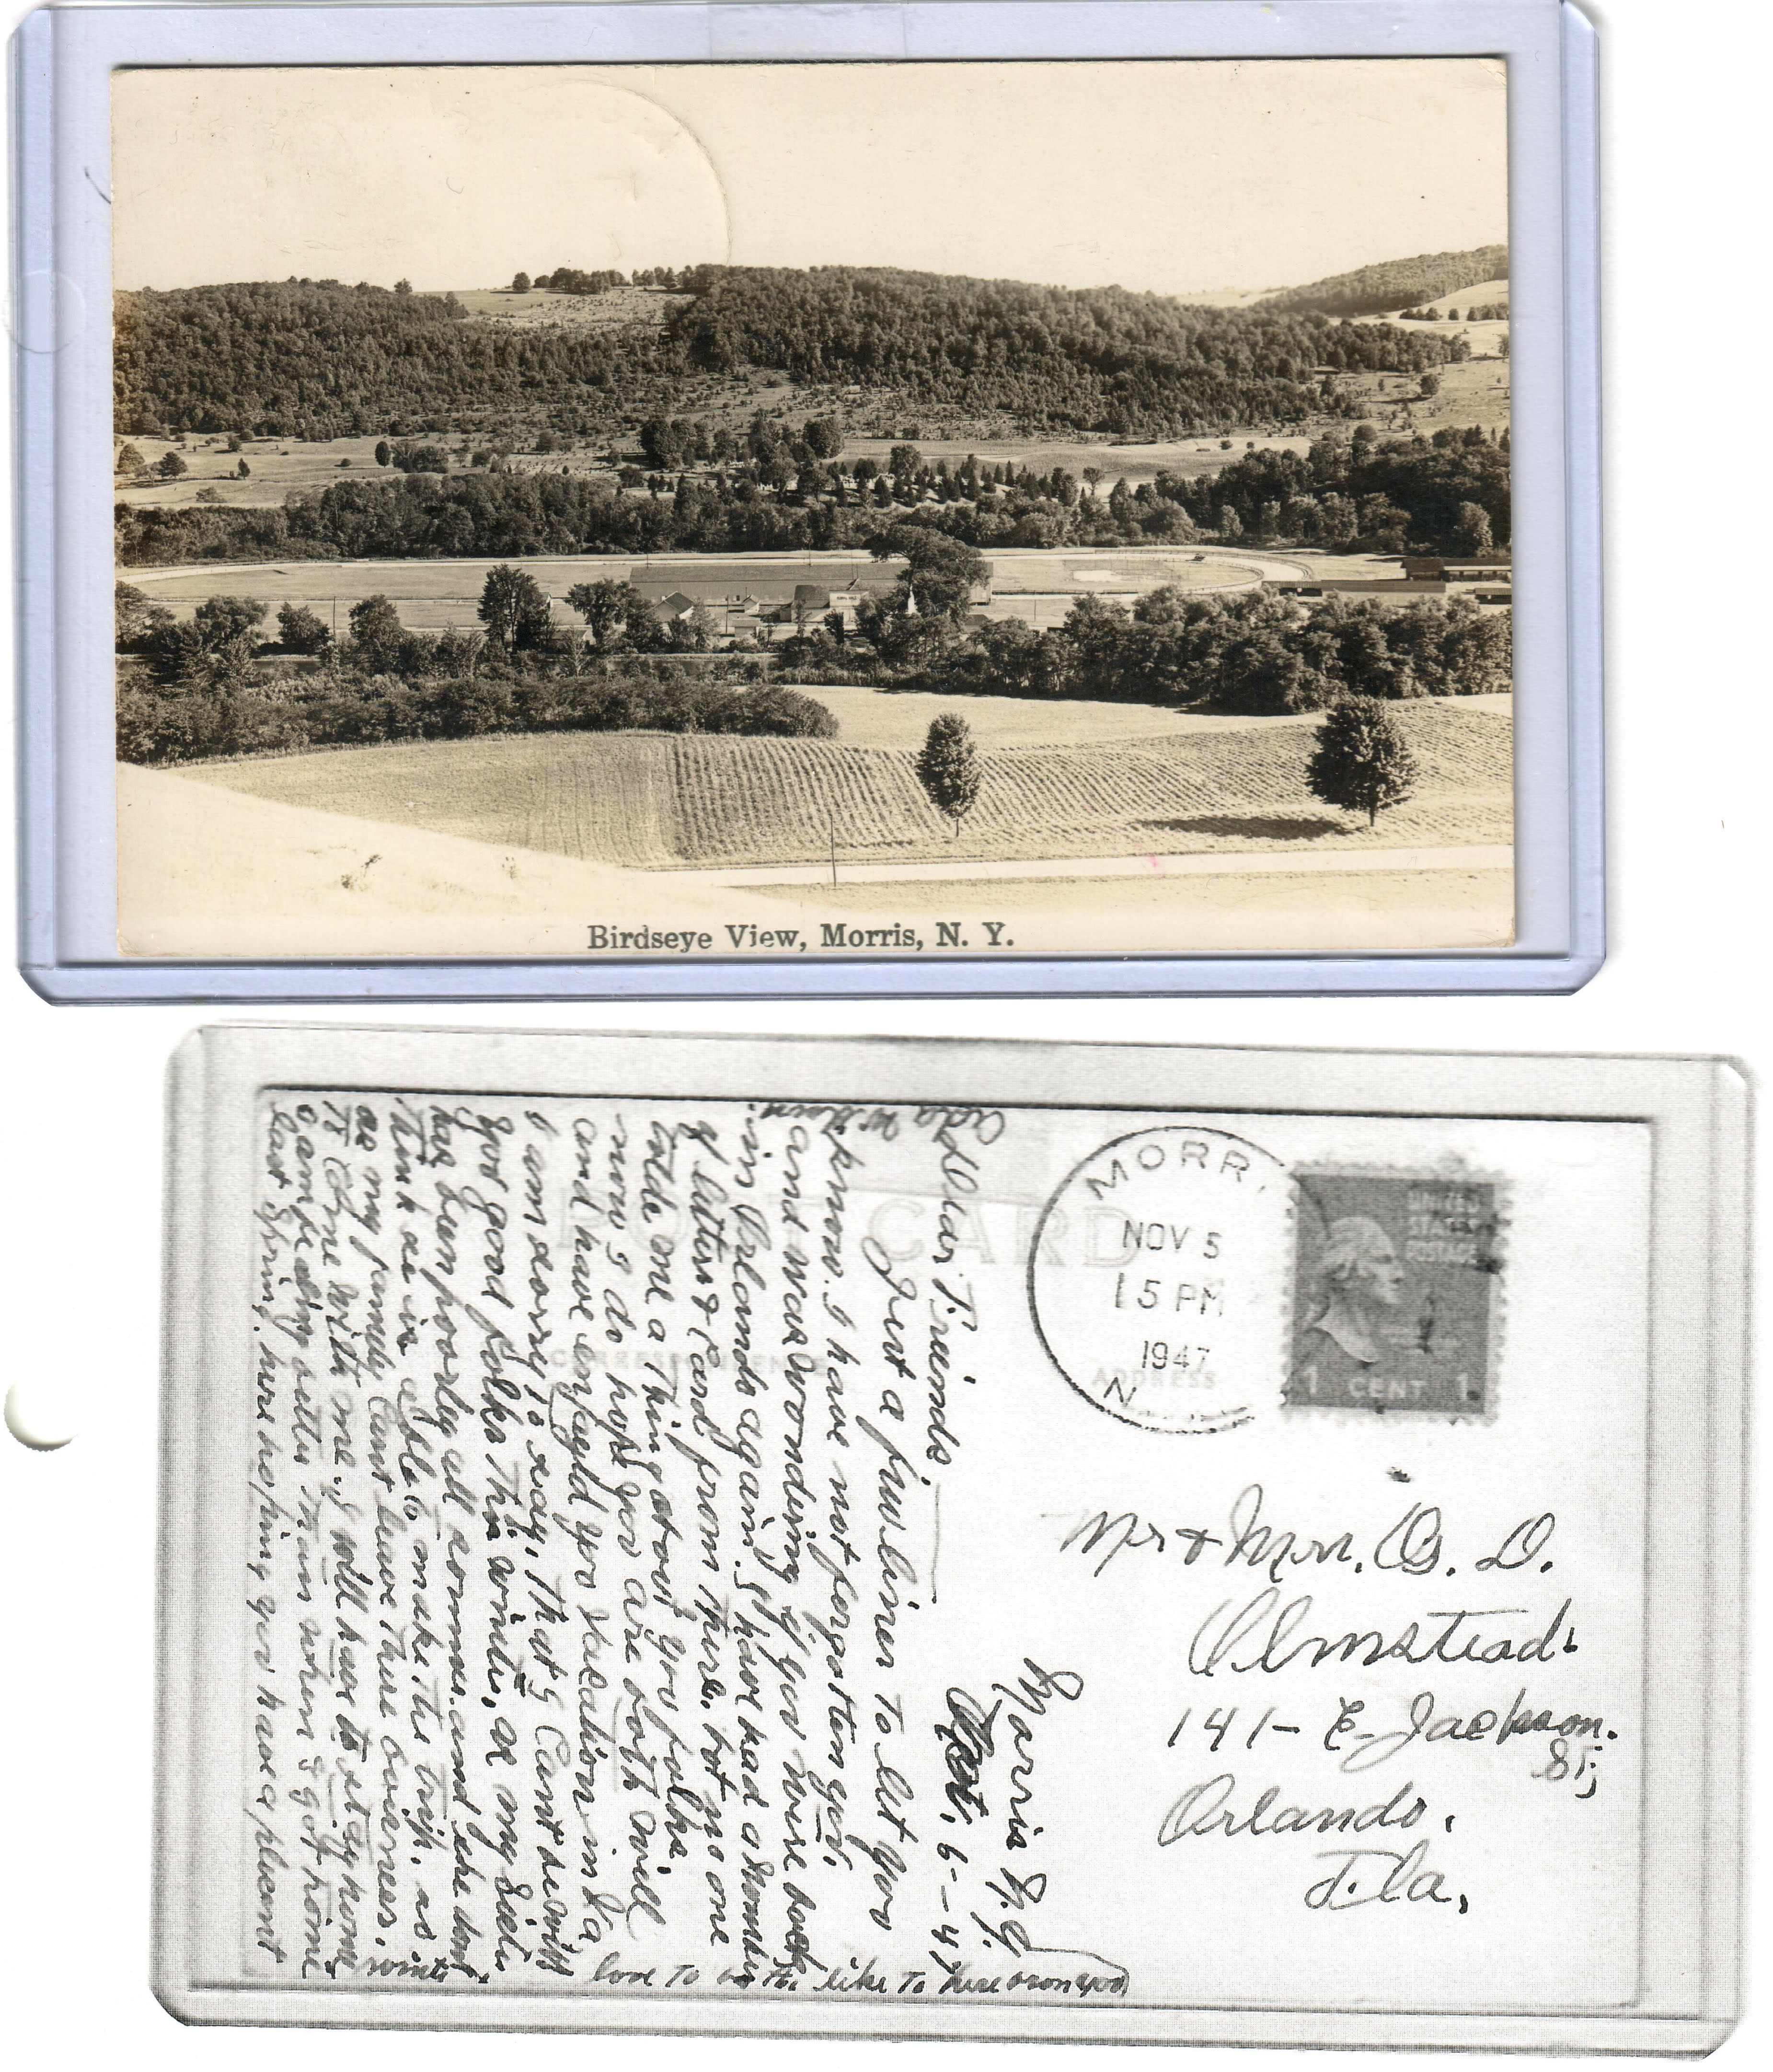 Birdseye View, Morris, N. Y.
POST CARD
CORRESPONDENCE
ADDRESS
MORR
NOV 5
15 PM
1947
N
UNITED
STATES
POSTAGE
1 CENT 1
Mr & Mrs. O. D.
Olmstead.
141- E. Jackson.
St;
Orlando.
Fla.
Morris N.Y.
6--47
Dear Friends,
Just a few lines to let you
know. I have not forgotten you,
and was wondering if you were back
in Orlando again. I have had a number
of letters & Card from there. but no one
tolde me a thing about you folks.
now I do hope you are both well
and have enjoyed you vacation in
I am sorry to say, that I Cant be with
you good folks this winter, as my Sister
has been poorley all sommer. and she dont
think she is able to make the trip. as
as my family Cant leave there
to Come with me. I will have to stay home
winter
I am feeling better than when I got home
last Spring. here hoping you have a plesent
love to both like to here from you
Ada